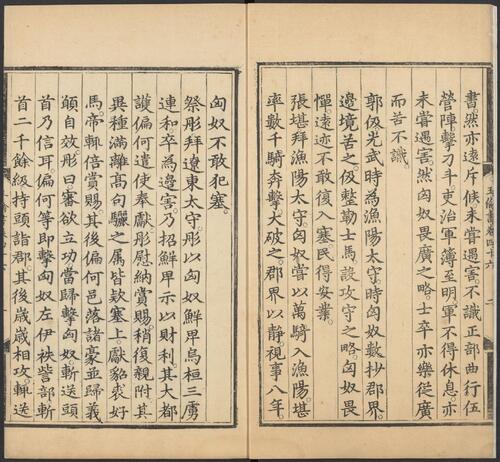 書然亦遠斥候未嘗遇害不識正部曲行伍
營陣擊刀斗吏治軍簿至明軍不得休息亦
未嘗遇害然匈奴畏廣之略士卒亦樂從廣
而苦不識
郭伋光武時為漁陽太守時匈奴數抄郡界
邊境苦之伋整勤士馬設攻守之略匈奴畏
憚遠迹不敢復入塞民得安業
張堪拜漁陽太守匈奴嘗以萬騎入漁陽堪
率數千騎奔擊大破之郡界以靜視事八年
匈奴不敢犯塞
祭肜拜遼東太守肜以匈奴鮮卑烏桓三虜
連和卒為邊害乃招鮮卑示以財利其大都
護偏何遣使奉獻肜慰納賞賜稍復親附其
異種滿離高句驪之屬皆欵塞上獻貂裘好
馬帝輒倍賞賜其後偏何邑落諸豪並歸義
願自效肜曰審欲立功當歸擊匈奴斬送頭
首乃信耳偏何等即擊匈奴左伊秩訾部斬
首二千餘級持頭詣郡其後歲歲相攻輒送